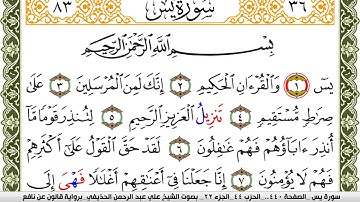 ٨٣ سورة يس ٣٦
بِسْمِ اللَّهِ الرَّحْمَٰنِ الرَّحِيمِ
يسٓ ١ وَالْقُرْءَانِ الْحَكِيمِ ٢ إِنَّكَ لَمِنَ الْمُرْسَلِينَ ٣ عَلَىٰ
صِرَٰطٍ مُّسْتَقِيمٍ ٤ تَنزِيلُ الْعَزِيزِ الرَّحِيمِ ٥ لِتُنذِرَ قَوْمًا مَّا
أُنذِرَ ءَابَآؤُهُمْ فَهُمْ غَٰفِلُونَ ٦ لَقَدْ حَقَّ الْقَوْلُ عَلَىٰٓ أَكْثَرِهِمْ
فَهُمْ لَا يُؤْمِنُونَ ٧ إِنَّا جَعَلْنَا فِىٓ أَعْنَٰقِهِمْ أَغْلَٰلًا فَهْىَ إِلَى
سورة يس .. الصفحة ٤٤٠ .. الحزب ٤٤ .. الجزء ٢٢ .. بصوت الشيخ علي عبد الرحمن الحذيفي .. برواية قالون عن نافع